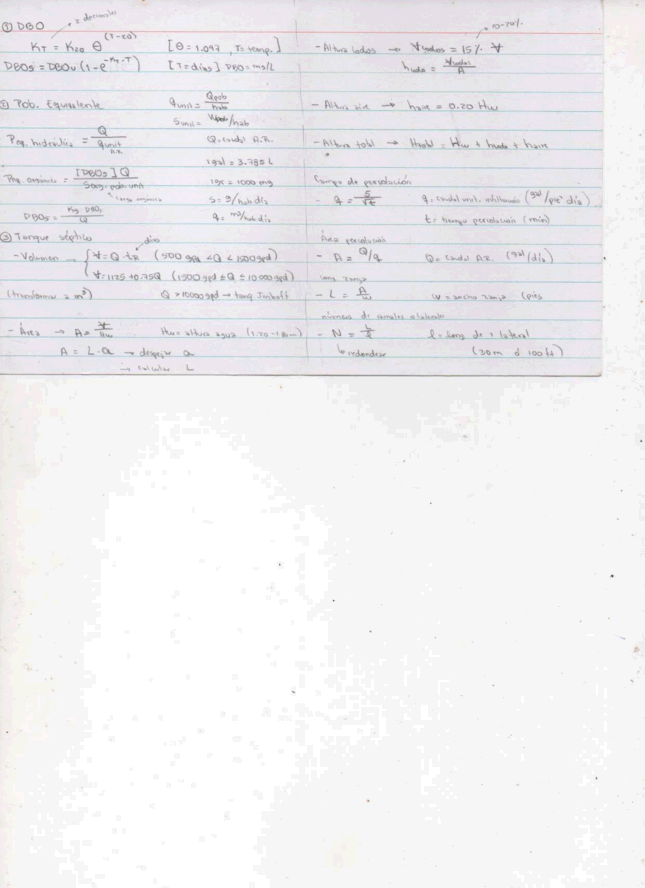 ① DBO
→ 2 decimales
K_T = K_20 θ^(T-20) [θ = 1.047, T = temp.]
DBO5 = DBOu (1-e^(-K_T·T)) [T = días] DBO = mg/L
② Pob. Equivalente
q unit = Q pob / hab
S unit = /hab
Peq. hidráulica = Q / q unit A.R.
Q = caudal A.R.
1 gal = 3.785 L
Peq. orgánica = [DBO5] Q / pob. unit
carga orgánica
1g = 1000 mg
S = g/hab día
DBO5 = Kg·DBO5 / Q
q = m³/hab día
③ Tanque séptico
días
- Volumen → { ∀ = Q·t_R (500 gpd < Q < 1500 gpd)
∀ = 1125 + 0.75Q (1500 gpd ≤ Q ≤ 10000 gpd)
(transformar a m³) Q > 10000 gpd → tanq. Imhoff
- Área → A = ∀ / Hw Hw = altura agua (1.20 - 1.80 m)
A = L·a → despejar a
→ calcular L
10-20%
- Altura lodos → ∀lodos = 15% ∀
h lodo = ∀lodos / A
- Altura aire → h aire = 0.20 Hw
- Altura total → H total = Hw + h lodo + h aire
Campo de percolación
- q = 5 / √t q = caudal unit. infiltrado (gal/pie² día)
t = tiempo percolación (min)
Área percolación
- A = Q/q Q = caudal A.R. (gal/día)
Long. zanja
- L = A / w w = ancho zanja (pies
número de ramales o laterales
- N = L / ℓ ℓ = long de 1 lateral
↳ redondear (30m ó 100ft)